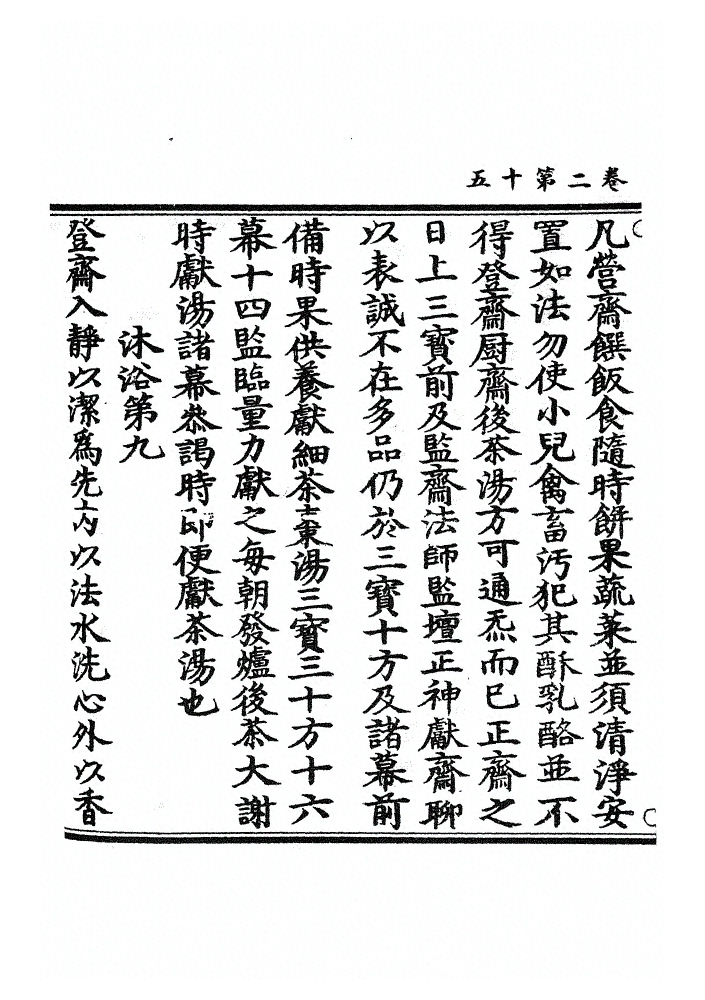 卷二第十五
凡營齋饌飯食隨時餅果蔬菜並須清淨安
置如法勿使小兒禽畜汚犯其酥乳酪並不
得登齋厨齋後茶湯方可通炁而已正齋之
日上三寶前及監齋法師監壇正神獻齋聊
以表誠不在多品仍於三寶十方及諸幕前
備時果供養獻細茶棗湯三寶三十方十六
幕十四監臨量力獻之每朝發爐後茶大謝
時獻湯諸幕恭謁時即便獻茶湯也
沐浴第九
登齋入靜以潔爲先內以法水洗心外以香